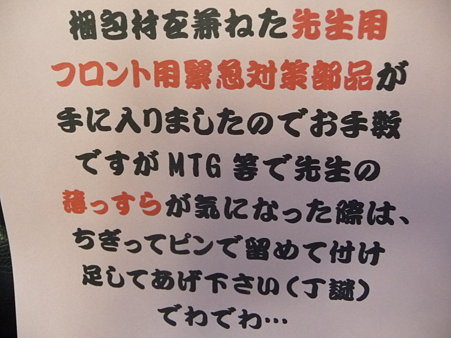 梱包材を兼ねた先生用
フロント用緊急対策部品が
手に入りましたのでお手数
ですがMTG等で先生の
薄っすらが気になった際は、
ちぎってピンで留めて付け
足してあげ下さい（丁誠）
でわでわ…